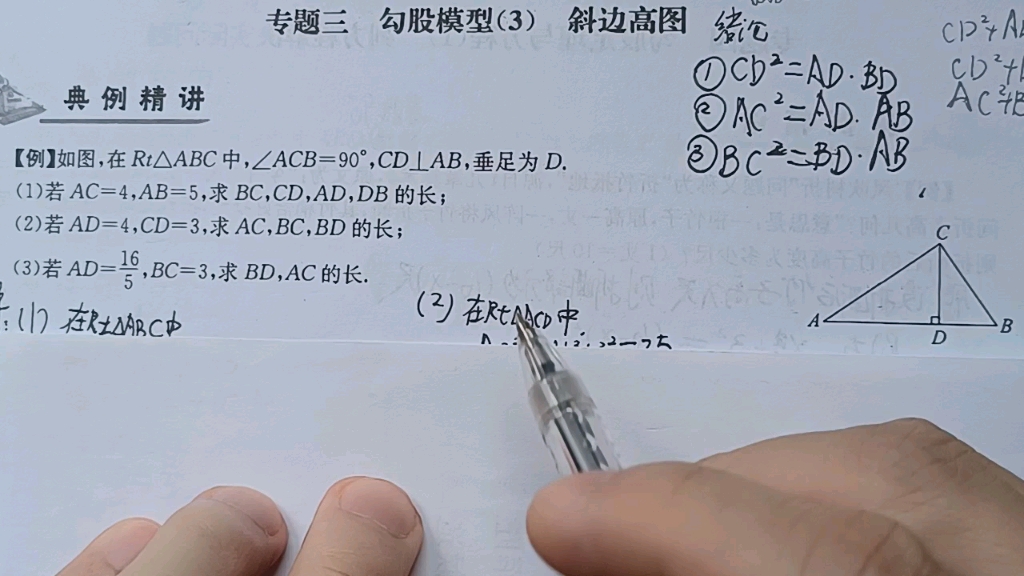 专题三 勾股模型(3) 斜边高图
结论
①CD²=AD·BD
②AC²=AD·AB
③BC²=BD·AB
CD²+A
CD²+
AC²+B
典例精讲
【例】如图,在Rt△ABC中,∠ACB=90°,CD⊥AB,垂足为D.
(1)若AC=4,AB=5,求BC,CD,AD,DB的长;
(2)若AD=4,CD=3,求AC,BC,BD的长;
(3)若AD=16/5,BC=3,求BD,AC的长.
:(1) 在Rt△ABC中
(2) 在Rt△ACD中
C
A
D
B